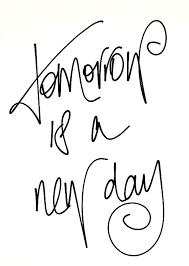 tomorrow
is a
new day